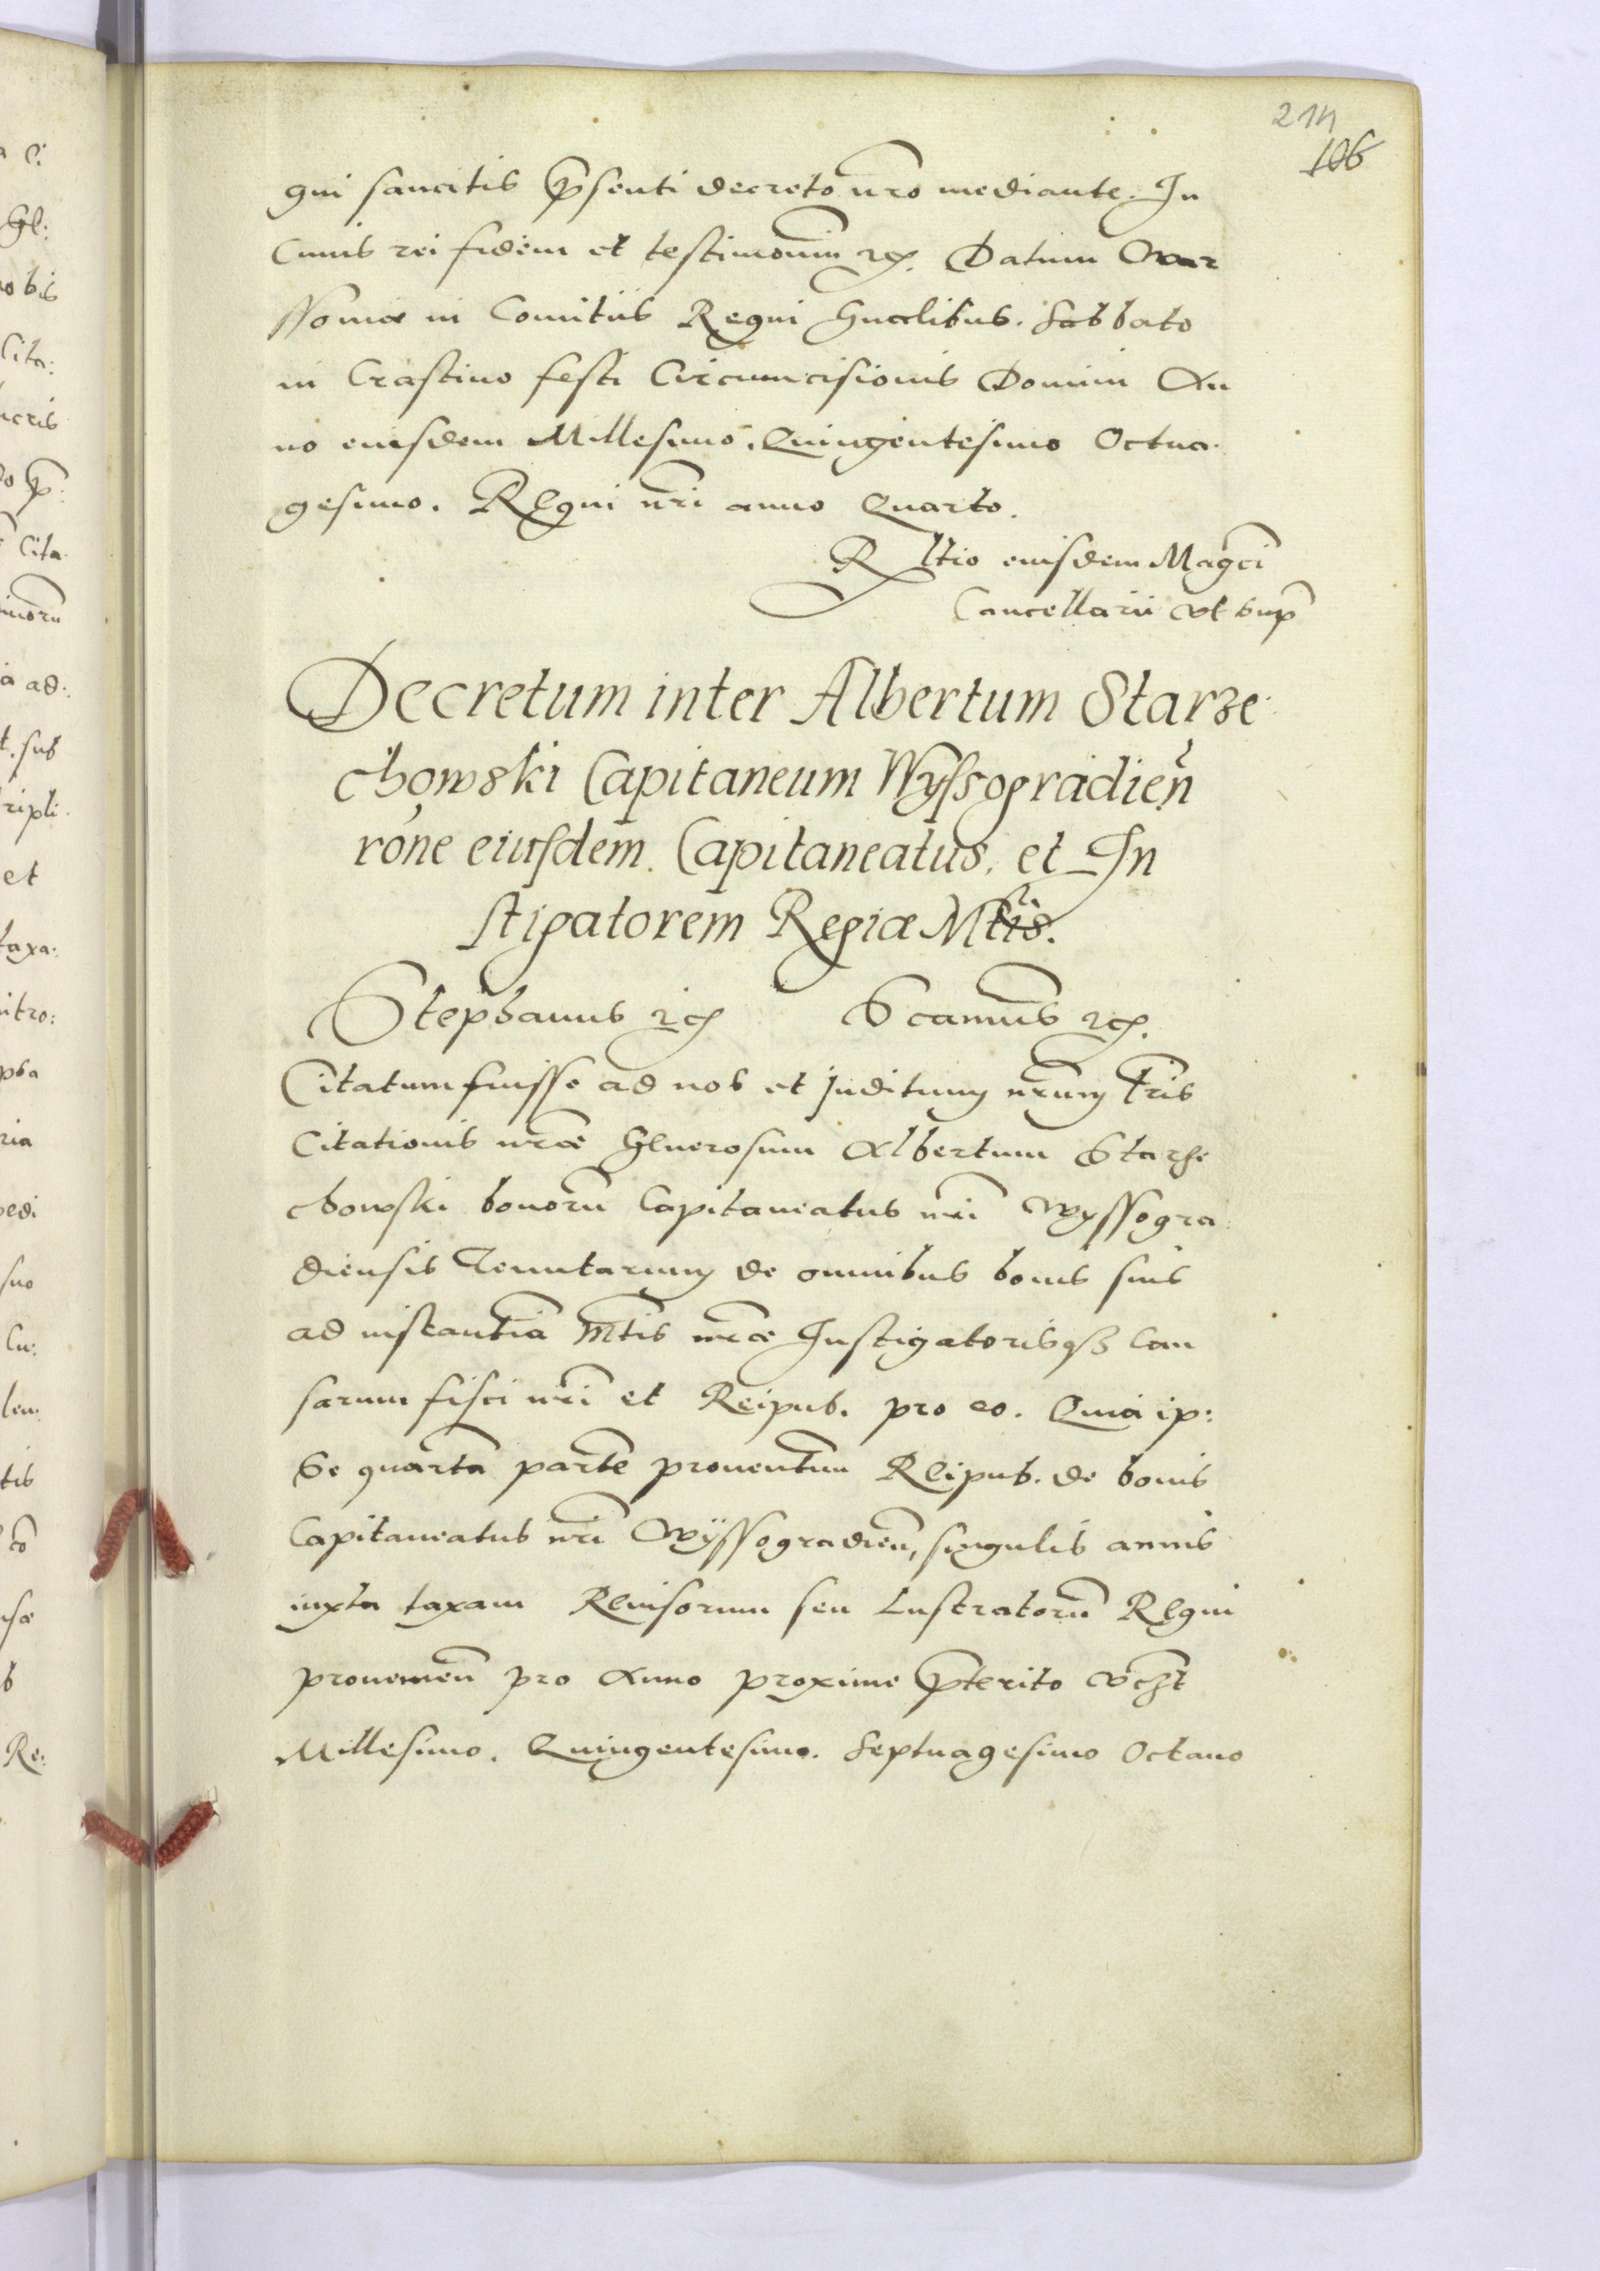 214
106
gni sancitis p̄senti decreto nr̄o mediante. In
Cuius rei fidem et testimoniū etc. Datum War
ssouiæ in Comitiis Regni gn̄alibus. Sabbato
in Crastino festi Circumcisionis Domini An
no eiusdem Millesimo. Quingentesimo Octua
gesimo. Regni nr̄i anno Quarto.
Rl̄tio eiusdem Magc̄i
Cancellarii vt sup̄
Decretum inter Albertum Starze
chowski Capitaneum Wyssogradien̄
rōne eiusdem Capitaneatus. et In
stigatorem Regiæ Mt̄is.
Stephanus etc Scamūs etc.
Citatum fuisse ad nos et Juditium nr̄um lr̄is
Citationis nr̄æ Generosum Albertum Starze
chowski bonorū Capitaneatus nr̄i Wyssogra
diensis Tenutarium de omnibus bonis suis
ad instantiā Mt̄is nr̄æ Instigatorisqȝ Cau
sarum fisci nr̄i et Reipub. pro eo. Quia ip:
se quartā partē prouentuū Reipub. de bonis
Capitaneatus nr̄i Wyssogradien̄, singulis annis
iuxta taxam Reuisorum seu Lustratorū Regni
prouenien̄ pro Anno proxime p̄terito vczt
Millesimo. Quingentesimo. Septuagesimo Octauo